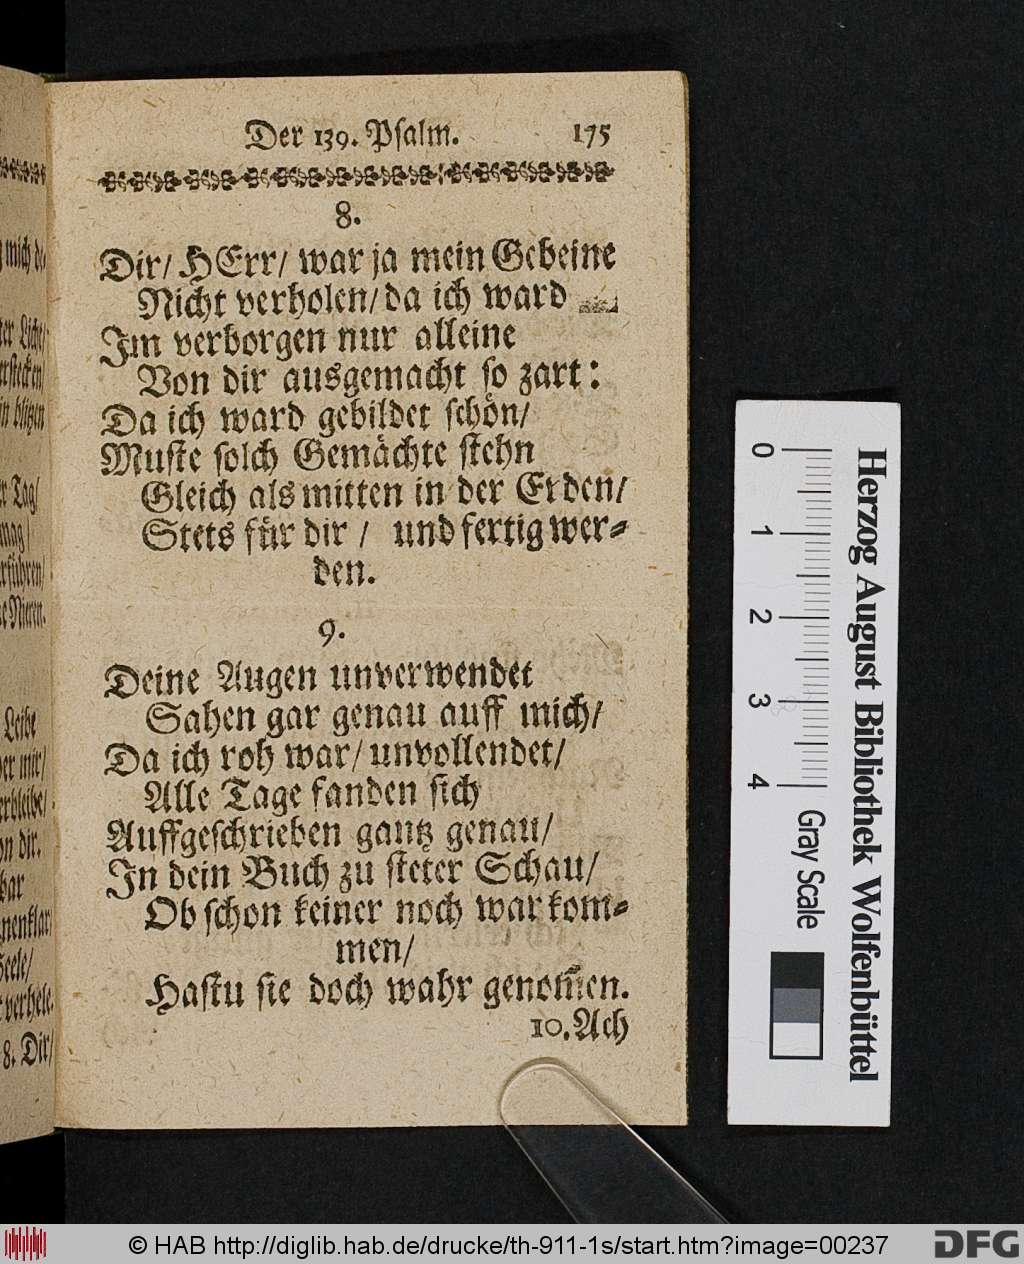 Der 139. Psalm. 175
8.
Dir/ HErr/ war ja mein Gebeine
Nicht verholen/ da ich ward
Im verborgen nur alleine
Von dir ausgemacht so zart:
Da ich ward gebildet schön/
Muste solch Gemächte stehn
Gleich als mitten in der Erden/
Stets für dir / und fertig wer-
den.
9.
Deine Augen unverwendet
Sahen gar genau auff mich/
Da ich roh war/ unvollendet/
Alle Tage fanden sich
Auffgeschrieben gantz genau/
In dein Buch zu steter Schau/
Ob schon keiner noch war kom-
men/
Hastu sie doch wahr genom̃en.
10. Ach
mich de-
Tag/
mag/
Nieren.
Leibe
mir/
dir.
8. Dir/
0
1
2
3
4
Gray Scale
Herzog August Bibliothek Wolfenbüttel
© HAB http://diglib.hab.de/drucke/th-911-1s/start.htm?image=00237
DFG